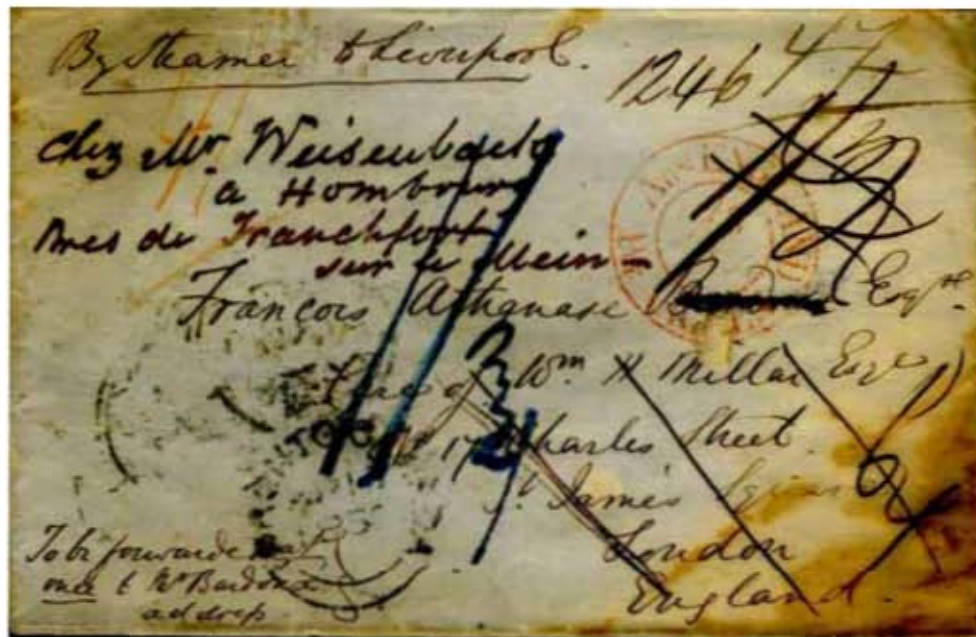 By Steamer to Liverpool.
1246
47
Chez Mr. Weisenbach
a Hombourg
Pres de Franckfort
sur le Mein
François Athanase Esqre
Care of Wm H Millar Esqre
17 Charles Street
St. James Square
London
England.
To be forwarded at
once to Mr
address